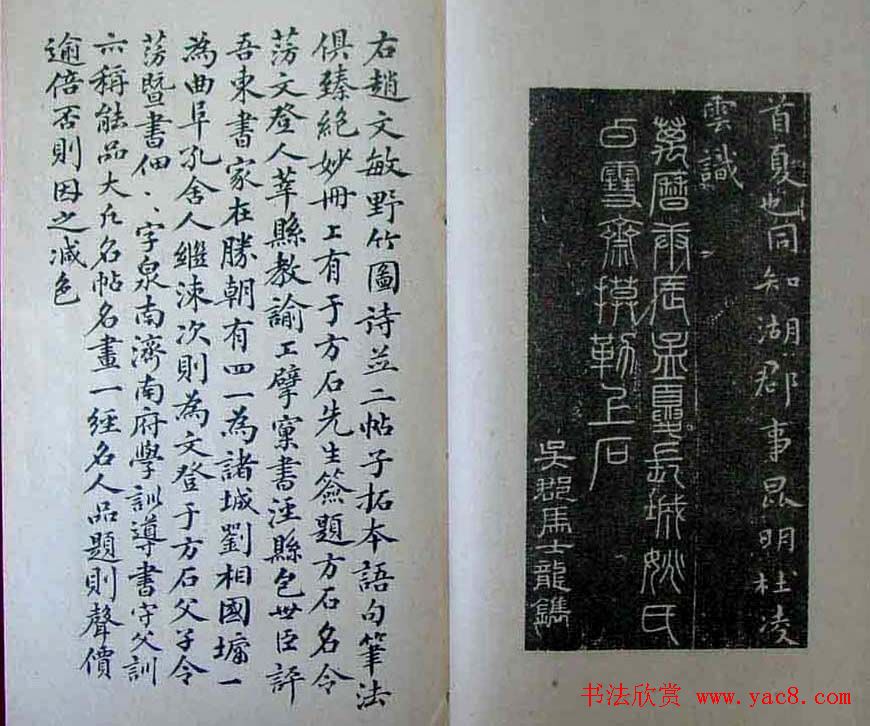 首夏也同知湖郡事昆明杜凌
雲識
萬曆丙辰孟夏長城姚氏
白雪齋摸勒上石
吳郡馬士龍鐫
右趙文敏野竹圖詩並二帖子拓本語句筆法
俱臻絕妙冊上有于方石先生簽題方石名令
蒡文登人莘縣教諭工擘窠書涇縣包世臣評
吾東書家在勝朝有四一為諸城劉相國墉一
為曲阜孔舍人繼涑次則為文登于方石父子令
蒡暨書佃、字泉南濟南府學訓導書守父訓
亦稱能品大凡名帖名畫一經名人品題則聲價
逾倍否則因之減色
书法欣赏 www.yac8.com